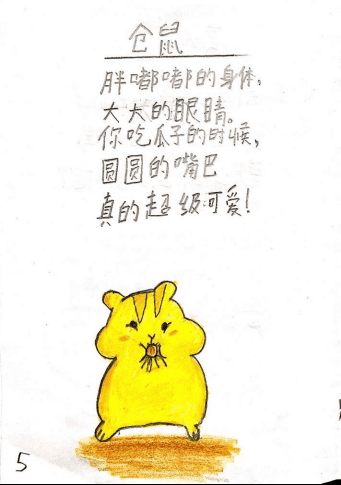 仓鼠
胖嘟嘟的身体，
大大的眼睛。
你吃瓜子的时候，
圆圆的嘴巴
真的超级可爱！
5